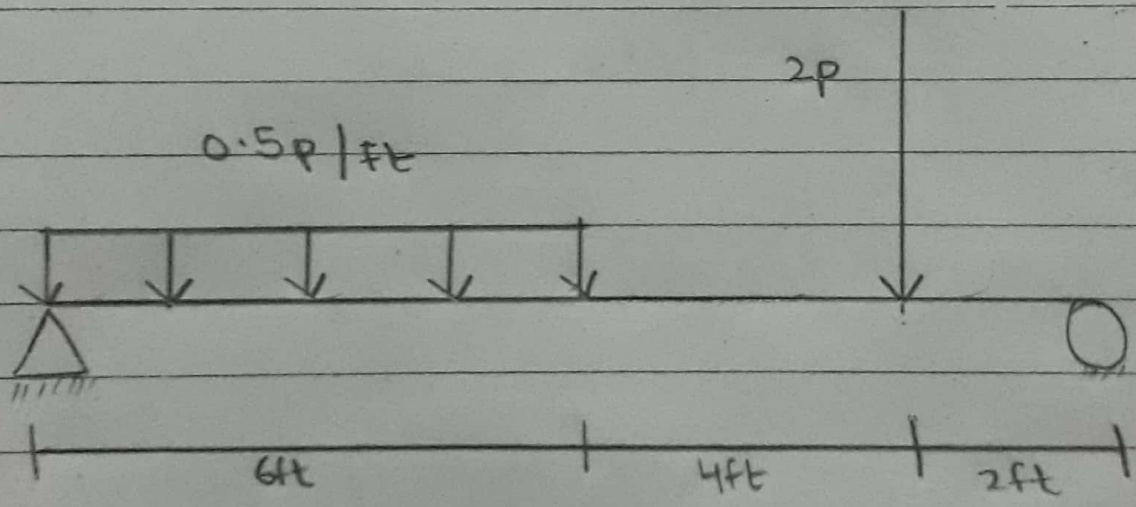 2p
0.5p/ft
6ft
4ft
2ft